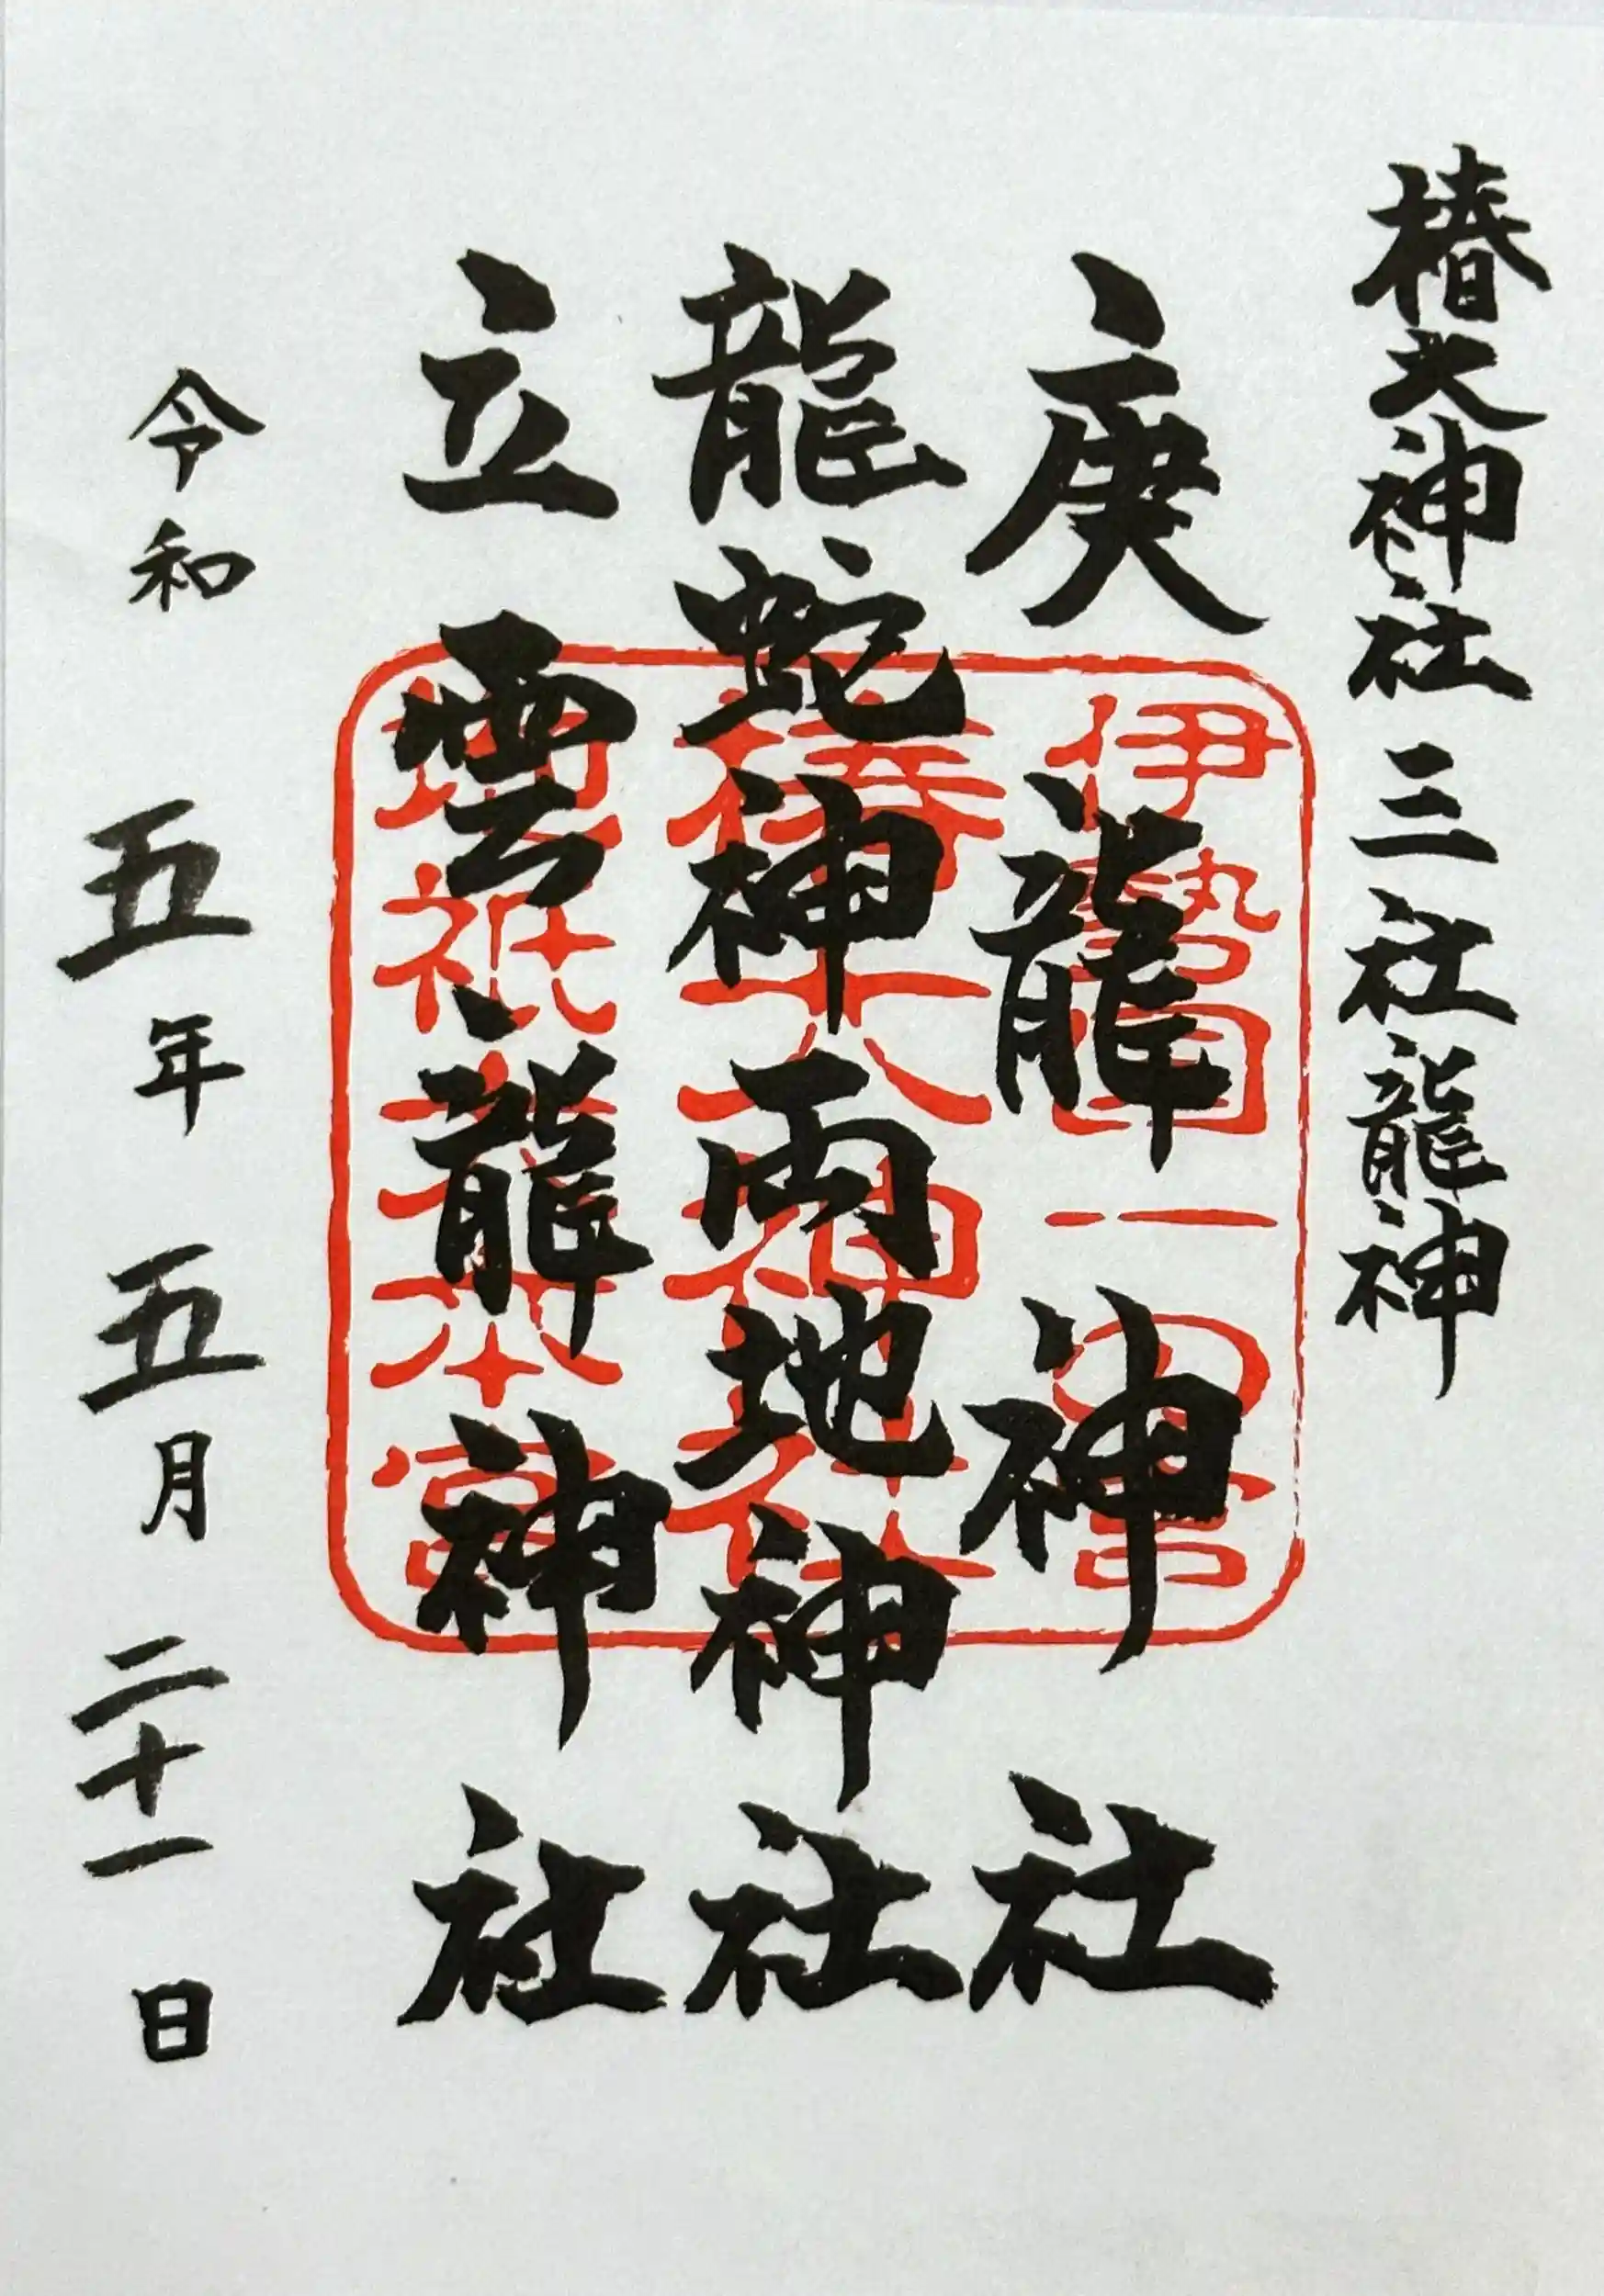 椿大神社 三社龍神
庚龍神社
龍蛇神両地神社
立雲龍神社
令和五年五月二十一日
伊勢国一の宮
椿大神社
地祇猿田彦大本宮